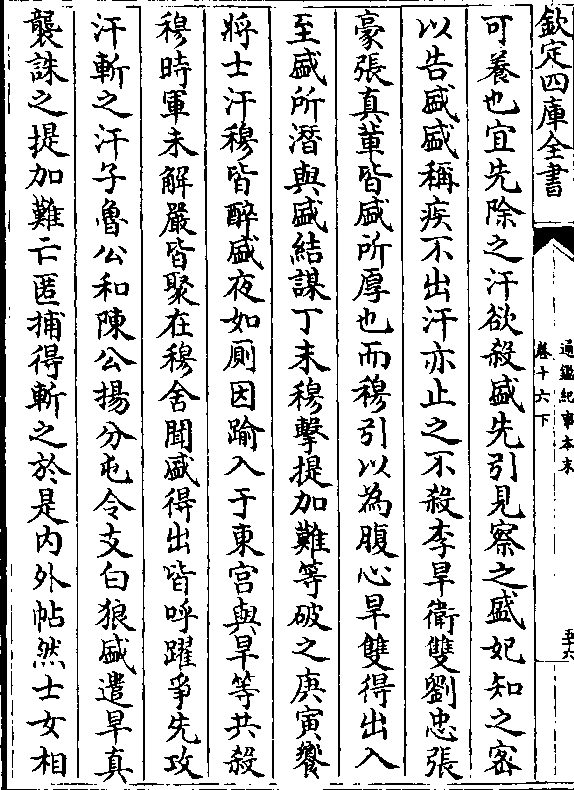 欽定四庫全書
通鑑紀事本末
卷十六下
五十六
可養也宜先除之汗欲殺盛先引見察之盛妃知之密
以告盛盛稱疾不出汗亦止之不殺李旱衛雙劉忠張
豪張真軰皆盛所厚也而穆引以為腹心旱雙得出入
至盛所潛與盛結謀丁未穆擊提加難等破之庚寅饗
將士汗穆皆醉盛夜如厠因踰入于東宫與旱等共殺
穆時軍未解嚴皆聚在穆舍聞盛得出皆呼躍爭先攻
汗斬之汗子魯公和陳公揚分屯令支白狼盛遣旱真
襲誅之提加難亡匿捕得斬之於是内外帖然士女相